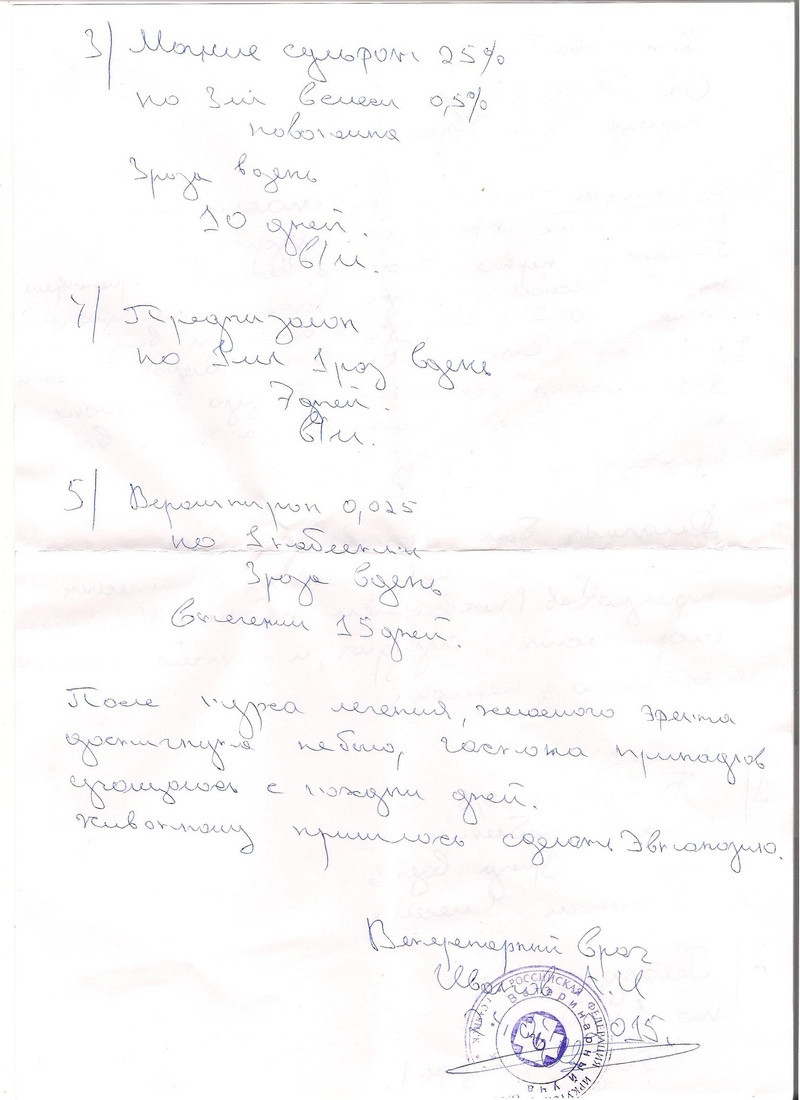 3/ Магние сульфат 25%
по 3мл всмеси 0,5%
новокаина
3раза вдень
10 дней.
в/м.
4/ Преднизолон
по 1мл 1раз вдень
7дней.
в/м.
5/ Верошпирон 0,025
по 1таблетки
3раза вдень
втечении 15дней.
После курса лечения, желаемого эфекта
достигнуто небыло, частота припадков
с дней.
Животному пришлось сделать Эвтаназию.
Ветеренарный врач
А.И
015г.
РОССИЙСКАЯ ФЕДЕРАЦИЯ
Ветеринарный уча